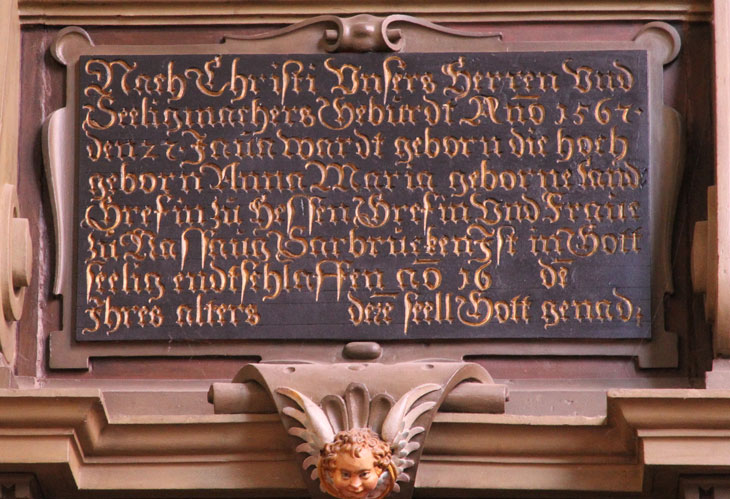 Nach Christi Vnsers Herren Vnd
Seeligmachers Geburdt Año 1567.
den 27 Januː wardt geborn die hoch
geborn Anna Maria geborne Landː
Grefin zu Hessen Grefin Vnd Frauw
zu Nassaug Sarbrucken Ist in Gott
seelig endtschlaffen aō 16 dē
ihres alters derē seell Gott genadː